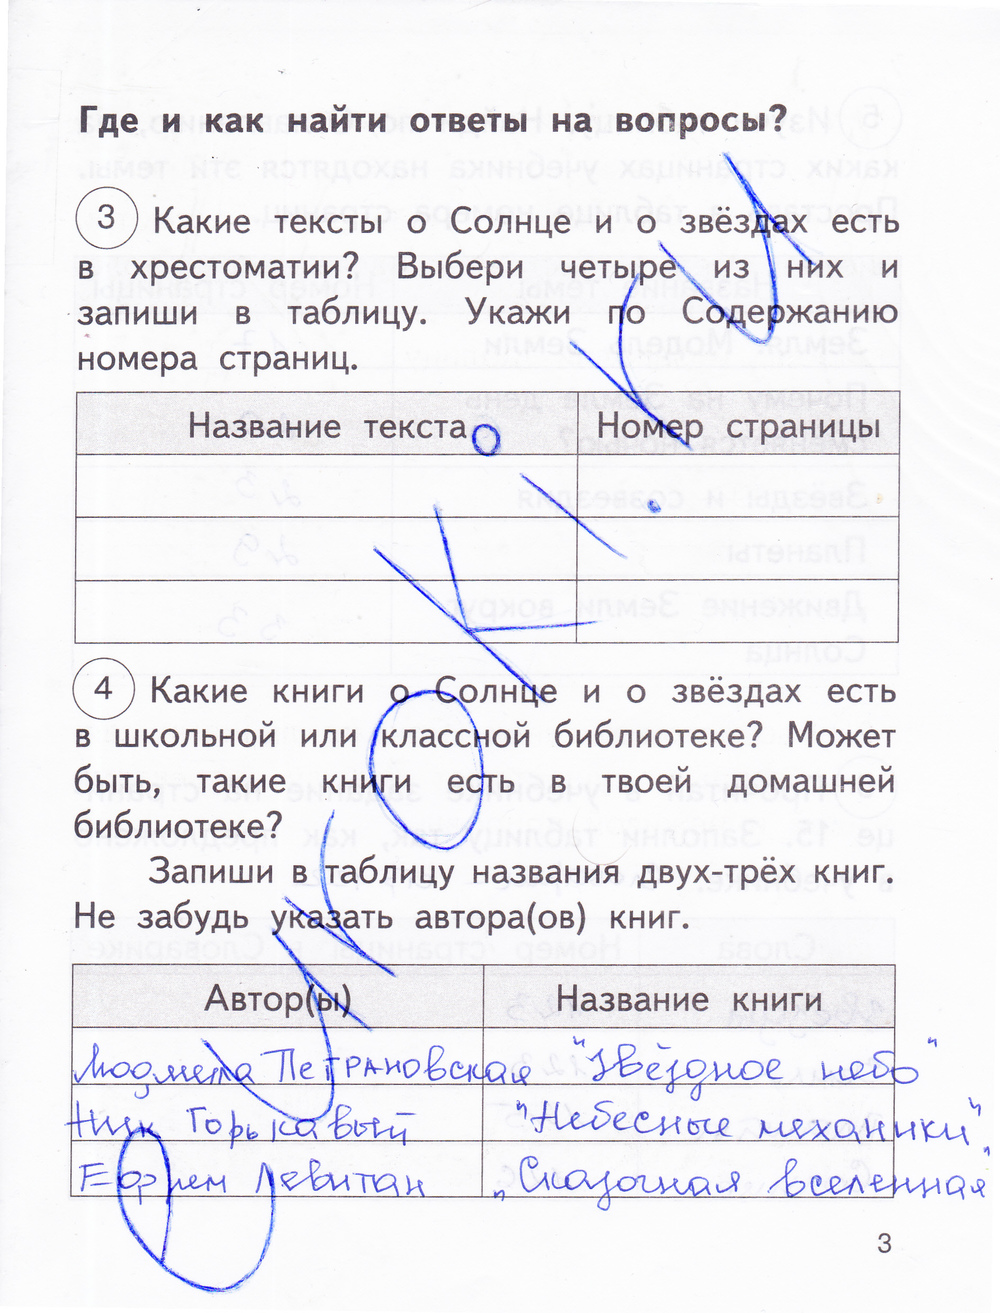 Где и как найти ответы на вопросы?
3 Какие тексты о Солнце и о звёздах есть
в хрестоматии? Выбери четыре из них и
запиши в таблицу. Укажи по Содержанию
номера страниц.
Название текста Номер страницы
4 Какие книги о Солнце и о звёздах есть
в школьной или классной библиотеке? Может
быть, такие книги есть в твоей домашней
библиотеке?
Запиши в таблицу названия двух-трёх книг.
Не забудь указать автора(ов) книг.
Автор(ы) Название книги
Людмила Петрановская "Звёздное небо"
Ник Горькавый "Небесные механики"
Ефрем Левитан "Сказочная вселенная"
3